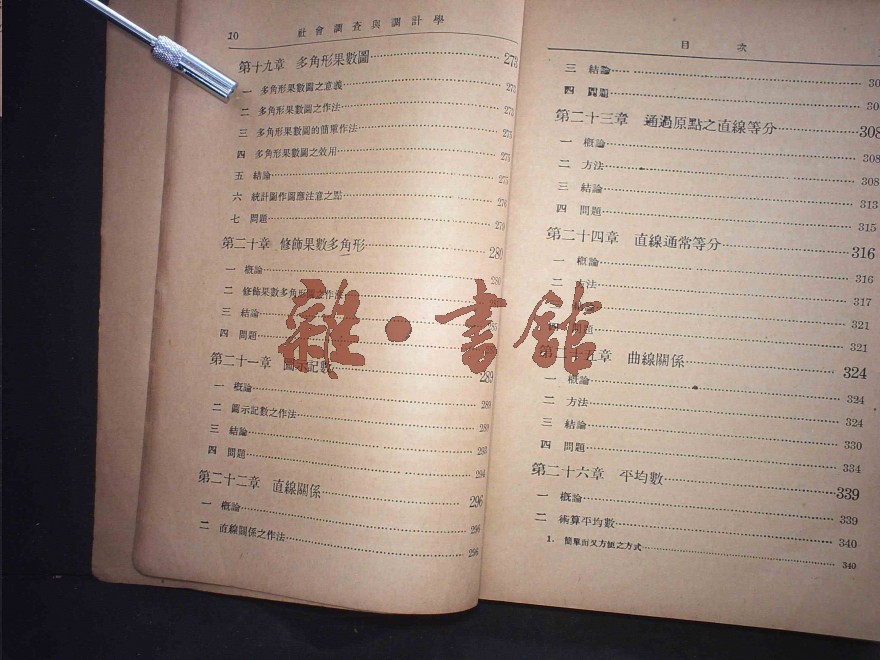 10 社會調查與調計學
第十九章 多角形果數圖 273
一 多角形果數圖之意義 273
二 多角形果數圖之作法 273
三 多角形果數圖的簡單作法 275
四 多角形果數圖之效用 275
五 結論 275
六 統計圖作圖應注意之點 276
七 問題 279
第二十章 修飾果數多角形 280
一 概論 280
二 修飾果數多角形 之作法
三 結論
四 問題
第二十一章 圖示記數 289
一 概論 289
二 圖示記數之作法 289
三 結論 293
四 問題 294
第二十二章 直線關係 296
一 概論 296
二 直線關係之作法 296
目次
三 結論
四 問題
第二十三章 通過原點之直線等分 308
一 概論 308
二 方法 308
三 結論 313
四 問題 315
第二十四章 直線通常等分 316
一 概論 316
二 方法 317
三 結論 321
四 問題 321
第二十五章 曲線關係 324
一 概論 324
二 方法 324
三 結論 330
四 問題 334
第二十六章 平均數 339
一 概論 339
二 術算平均數 340
1. 簡單而又方便之方式 340
雜·書館